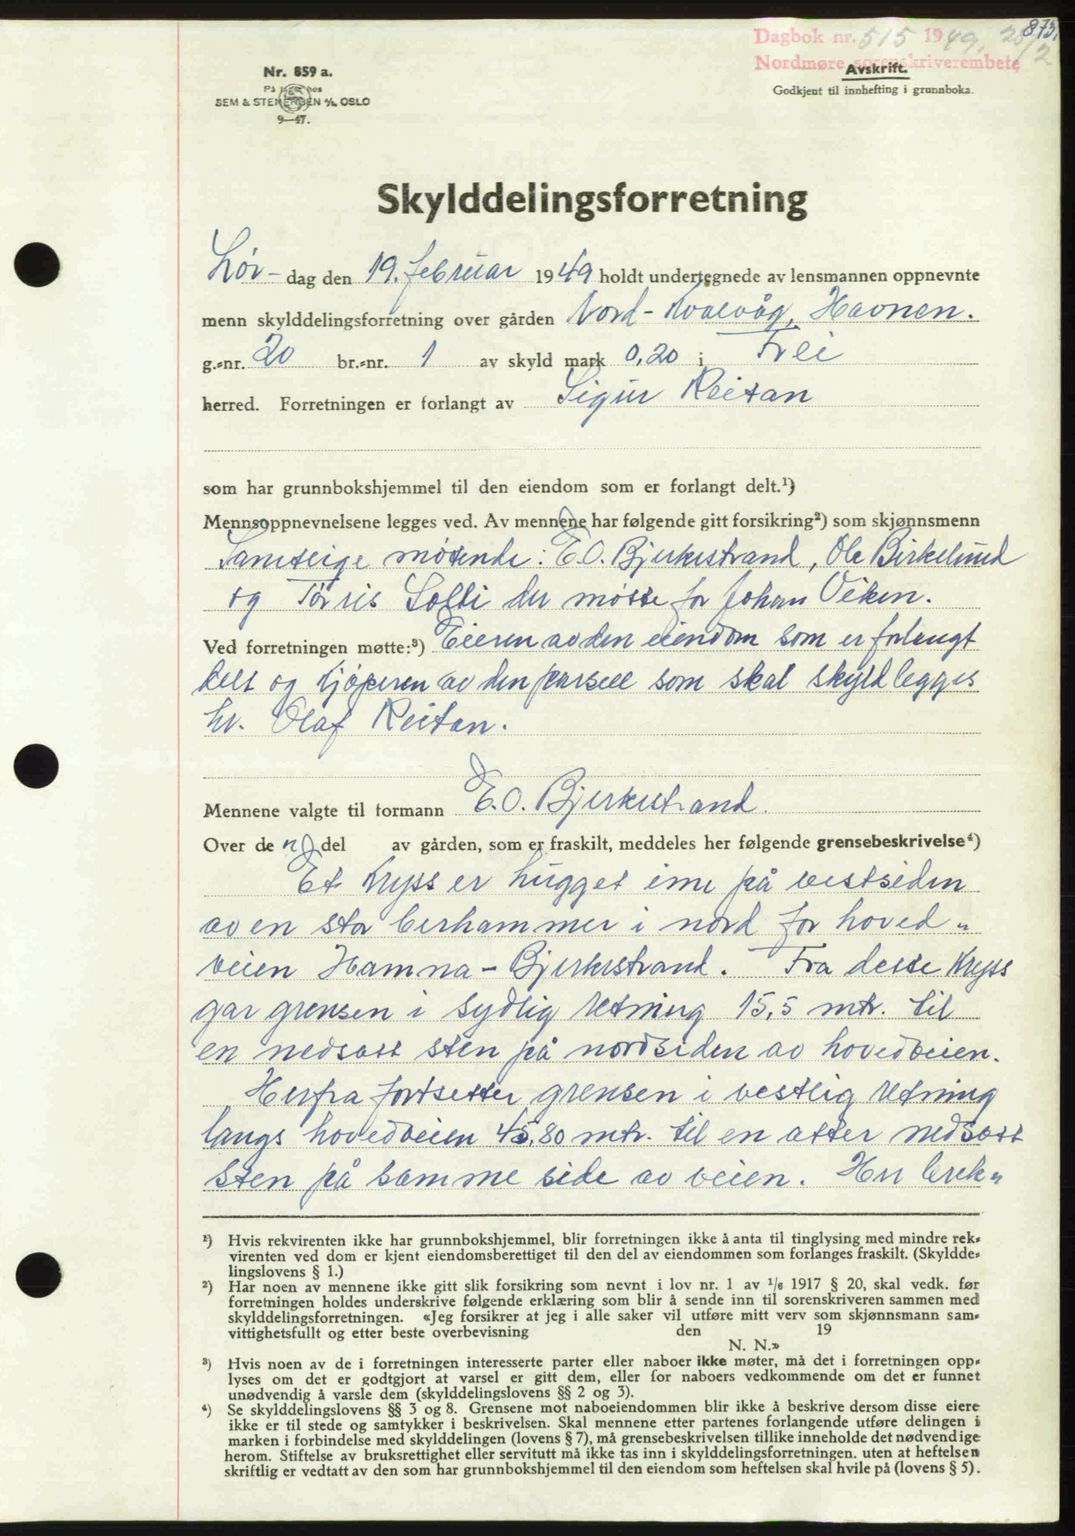 873.
Dagbok nr. 515 1949, 25/2
Nordmøre sorenskriverembete
Avskrift.
Godkjent til innhefting i grunnboka.
Nr. 859 a.
På hos
SEM & STENERSEN A/S, OSLO
9—47.
Skylddelingsforretning
Lør- dag den 19. februar 1949 holdt undertegnede av lensmannen oppnevnte
menn skylddelingsforretning over gården Nord-Kvalvåg, Havnen.
g.-nr. 20 br.-nr. 1 av skyld mark 0,20 i Frei
herred. Forretningen er forlangt av Sigur Reitan
som har grunnbokshjemmel til den eiendom som er forlangt delt.¹)
Mennsoppnevnelsene legges ved. Av mennene har følgende gitt forsikring²) som skjønnsmenn
Samtlige møtende: E.O. Bjerkestrand, Ole Birkelund
og Tørris Solli der møtte for Johan Viken.
Ved forretningen møtte:³) Eieren av den eiendom som er forlangt
delt og kjøperen av den parsell som skal skyldlegges
hr. Olaf Reitan.
Mennene valgte til formann E.O. Bjerkestrand.
Over de n del av gården, som er fraskilt, meddeles her følgende grensebeskrivelse⁴)
Et kryss er hugget inn på vestsiden
av en stor berhammer i nord for hoved„
veien Hamna - Bjerkestrand. Fra dette kryss
går grensen i sydlig retning 15,5 mtr. til
en nedsatt sten på nordsiden av hovedveien.
Herfra fortsetter grensen i vestlig retning
langs hovedveien 45,80 mtr. til en atter nedsatt
sten på samme side av veien. Her brek„
¹) Hvis rekvirenten ikke har grunnbokshjemmel, blir forretningen ikke å anta til tinglysing med mindre rek-
virenten ved dom er kjent eiendomsberettiget til den del av eiendommen som forlanges fraskilt. (Skyldde-
lingslovens § 1.)
²) Har noen av mennene ikke gitt slik forsikring som nevnt i lov nr. 1 av 1/6 1917 § 20, skal vedk. før
forretningen holdes underskrive følgende erklæring som blir å sende inn til sorenskriveren sammen med
skylddelingsforretningen. «Jeg forsikrer at jeg i alle saker vil utføre mitt verv som skjønnsmann sam-
vittighetsfullt og etter beste overbevisning den 19
N. N.»
³) Hvis noen av de i forretningen interesserte parter eller naboer ikke møter, må det i forretningen opp-
lyses om det er godtgjort at varsel er gitt dem, eller for naboers vedkommende om det er funnet
unødvendig å varsle dem (skylddelingslovens §§ 2 og 3).
⁴) Se skylddelingslovens §§ 3 og 8. Grensene mot naboeiendommen blir ikke å beskrive dersom disse eiere
ikke er til stede og samtykker i beskrivelsen. Skal mennene etter partenes forlangende utføre delingen i
marken i forbindelse med skylddelingen (lovens § 7), må grensebeskrivelsen tillike inneholde det nødvendige
herom. Stiftelse av bruksrettighet eller servitutt må ikke tas inn i skylddelingsforretningen, uten at heftelsen
skriftlig er vedtatt av den som har grunnbokshjemmel til den eiendom som heftelsen skal hvile på (lovens § 5).